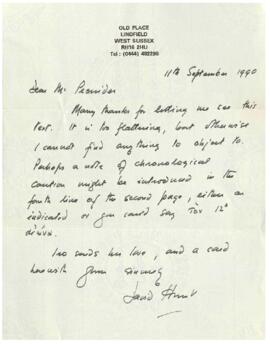 OLD PLACE
LINDFIELD
WEST SUSSEX
RH16 2HU
Tel: (0444) 482298
11th September 1990
Dear Mr
Many thanks for letting me see this
text. It is too flattering, but otherwise
I cannot find anything to object to.
Perhaps a note of chronological
caution might be introduced in the
fourth line of the second page, either as
indicated or you could say
Iro sends her love, and a card
herewith
Yours sincerely
David Hunt